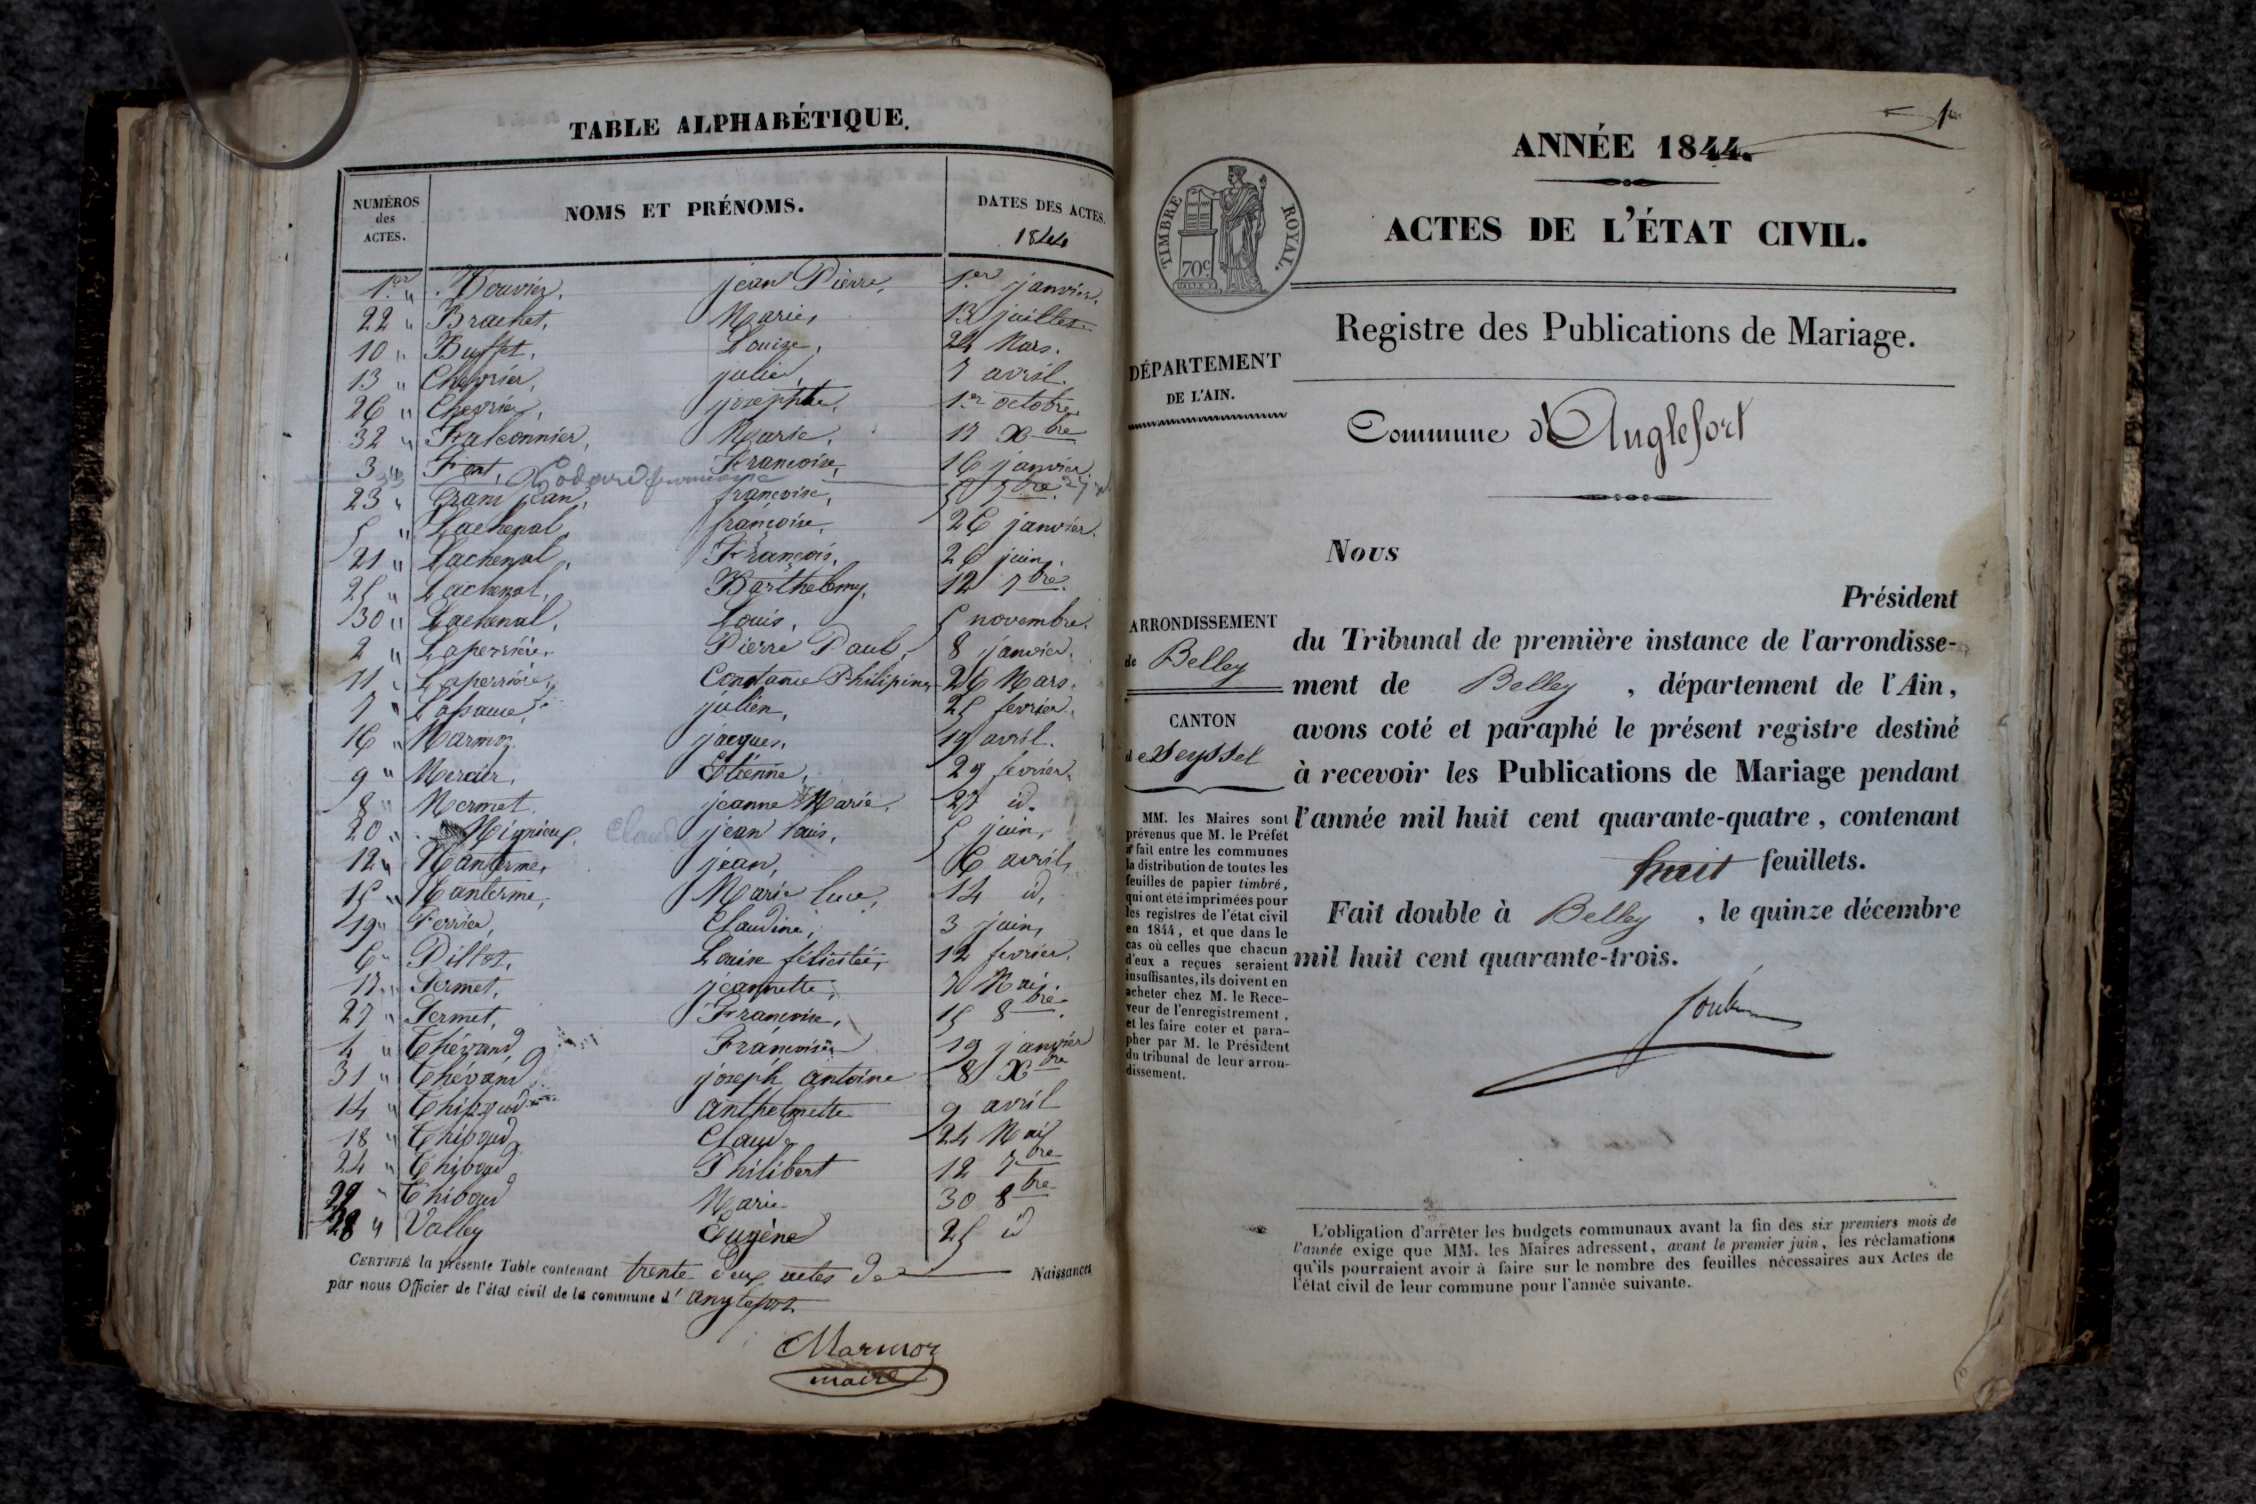 TABLE ALPHABÉTIQUE.
NUMÉROS des ACTES. NOMS ET PRÉNOMS. DATES DES ACTES.
1844
1er " Bouvier, jean Pierre, 1er janvier.
22 " Brachet, Marie, 13 juillet
10 " Buffet, Louise, 24 Mars.
13 " Chevrier, julie, 7 avril.
26 " Chevrier, josephte, 1er octobre
32 " Falconnier, Marie, 17 Xbre
3 " Fert, Francoise, 16 janvier.
23 " Grand jean, francoise, 5 7bre
5 " Lachenal francoise, 26 janvier.
21 " Lachenal, François, 26 juin.
25 " Lachenal, Barthelemy, 12 7bre.
30 " Lachenal, Louis, 5 novembre.
2 " Laperrière, Pierre Paul, 8 janvier.
11 " Laperrière, Constance Philipine, 26 Mars.
7 " julien, 25 fevrier.
16 " Marmoz jacques, 19 avril.
9 " Mercier, Etienne, 29 fevrier.
8 " Mermet jeanne Marie, 27 id.
20 " Claude jean Louis, 5 juin,
12 " Nanterme, jean, 6 avril,
15 " Nanterme, Marie luce, 14 id,
19 " Perrier, Claudine, 3 juin,
6 " Pillot, Louise felicitée, 12 fevrier.
17 " Sermet, jeannette, 7 Mai.
27 " Sermet, Francoise, 15 8bre.
4 " Thévand Françoise 19 janvier
31 " Thévand joseph antoine 8 Xbre
14 " Thiboud anthelmette 9 avril
18 " Thiboud Claude 24 Mai
24 " Thiboud Philibert 12 7bre
29 " Thiboud Marie 30 8bre
28 " Valley Eugène 25 id
CERTIFIÉ la présente Table contenant trente deux actes de Naissances
par nous Officier de l'état civil de la commune d' anglefort
Marmoz
maire
1er
ANNÉE 1844.
TIMBRE ROYAL.
70c
ACTES DE L'ÉTAT CIVIL.
Registre des Publications de Mariage.
DÉPARTEMENT
DE L'AIN.
Commune d'Anglefort
Nous
Président
ARRONDISSEMENT
de Belley
CANTON
de Seyssel
du Tribunal de première instance de l'arrondisse-
ment de Belley , département de l'Ain,
avons coté et paraphé le présent registre destiné
à recevoir les Publications de Mariage pendant
l'année mil huit cent quarante-quatre, contenant
huit feuillets.
Fait double à Belley , le quinze décembre
mil huit cent quarante-trois.
MM. les Maires sont
prévenus que M. le Préfet
a fait entre les communes
la distribution de toutes les
feuilles de papier timbré,
qui ont été imprimées pour
les registres de l'état civil
en 1844, et que dans le
cas où celles que chacun
d'eux a reçues seraient
insuffisantes, ils doivent en
acheter chez M. le Rece-
veur de l'enregistrement,
et les faire coter et para-
pher par M. le Président
du tribunal de leur arron-
dissement.
L'obligation d'arrêter les budgets communaux avant la fin des six premiers mois de
l'année exige que MM. les Maires adressent, avant le premier juin, les réclamations
qu'ils pourraient avoir à faire sur le nombre des feuilles nécessaires aux Actes de
l'état civil de leur commune pour l'année suivante.